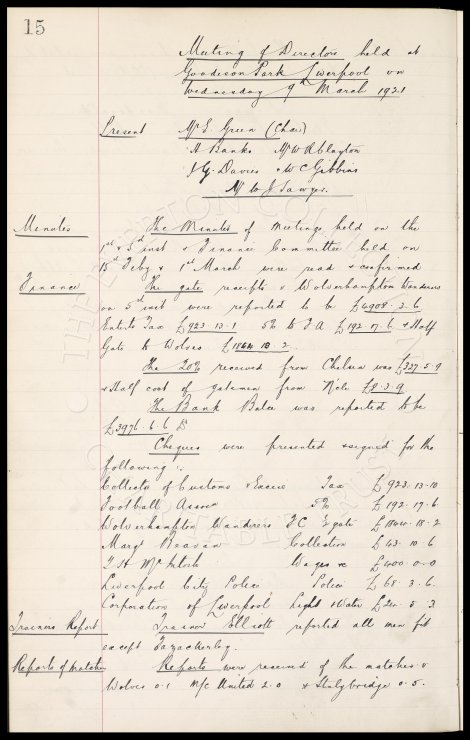 15
Meeting of Directors held at
Goodison Park Liverpool on
Wednesday 9th March 1921
Present Mr E. Green (Chair)
A Banks Mr W R Clayton
J G. Davies & W C Gibbins
Mr W J Sawyer.
Minutes The Minutes of meetings held on the
1st & 5th inst & Finance Committee held on
15th Feby & 1st March were read & confirmed
Finance The gate receipts v Wolverhampton Wanderers
on 5th inst were reported to be £4908. 3. 6
Ents Tax £923. 13. 1 5% to F A £192. 17. 6 & Half
Gate to Wolves £1844. 18. 2.
The 20% received from Chelsea was £337. 5. 9
& Half cost of gatemen from N'cle £8. 3. 9
The Bank Balce was reported to be
£3976. 6. 6
Cheques were presented & signed for the
following :-
Collector of Customs & Excise Tax £923. 13. 10
Football Assocn 5% £192. 17. 6
Wolverhampton Wanderers F C ½ gate £1844. 18. 2
Margt Beavan Collection £43. 10. 6
T. H. McIntosh Wages &c £400. 0. 0
Liverpool City Police Police £68. 3. 6.
Corporation of Liverpool Light & Water £20. 5. 3
Trainers Report Trainer Elliott reported all men fit
except Fazackerley.
Reports of matches Reports were received of the matches v
Wolves 0.1 M/c United 2.0 & Stalybridge 0.5.
THE EVERTON COLLECTION
CHARITABLE TRUST